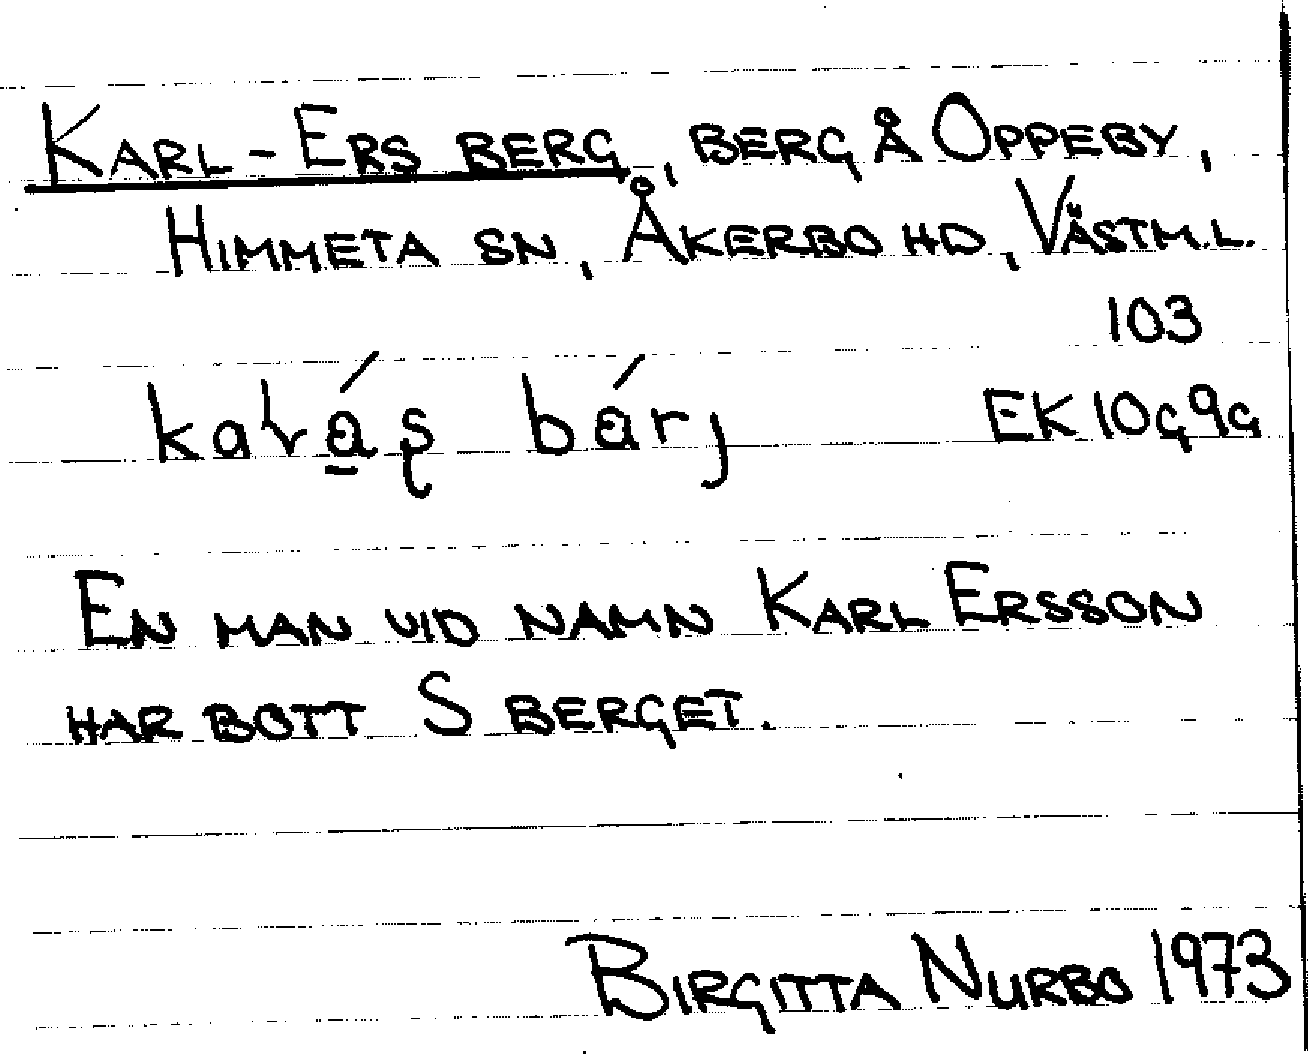 Karl-Ers berg, berg å Oppeby,
Himmeta sn, Åkerbo hd, Västm.l.
103
bärj EK 10g9g
En man vid namn Karl Ersson
har bott S berget.
Birgitta Nurbo 1973